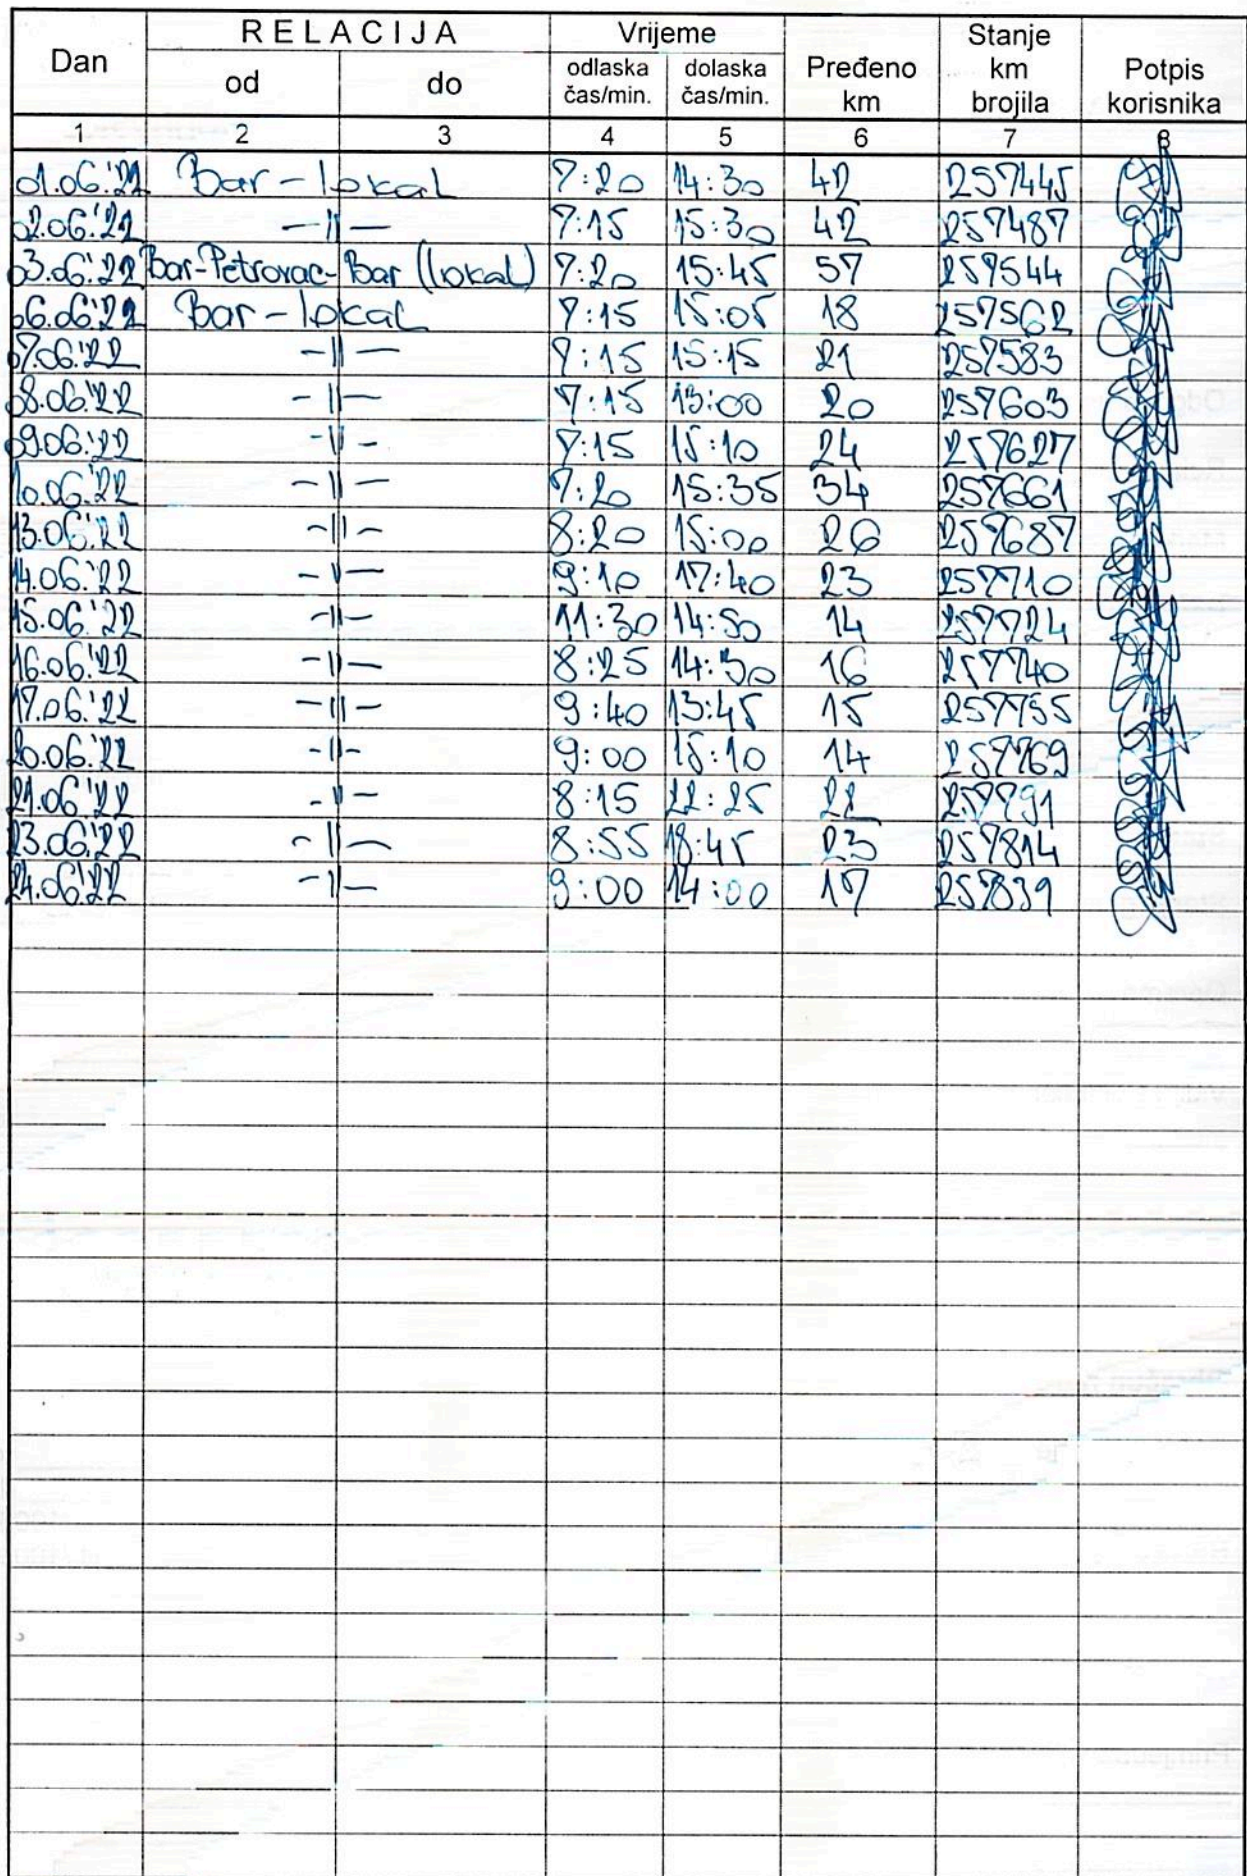 Dan RELACIJA Vrijeme Pređeno km Stanje km brojila Potpis korisnika
od do odlaska čas/min. dolaska čas/min.
1 2 3 4 5 6 7 8
01.06.'22 Bar - lokal 7:20 14:30 42 257445
02.06.'22 -||- 7:15 15:30 42 257487
03.06.'22 Bar-Petrovac-Bar (lokal) 7:20 15:45 57 257544
06.06.'22 Bar - lokal 7:15 15:05 18 257562
07.06.'22 -||- 7:15 15:15 21 257583
08.06.'22 -||- 7:15 13:00 20 257603
09.06.'22 -||- 7:15 15:10 24 257627
10.06.'22 -||- 7:20 15:35 34 257661
13.06.'22 -||- 8:20 15:00 26 257687
14.06.'22 -||- 9:10 17:40 23 257710
15.06.'22 -||- 11:30 14:50 14 257724
16.06.'22 -||- 8:25 14:30 16 257740
17.06.'22 -||- 9:40 13:45 15 257755
20.06.'22 -||- 9:00 15:10 14 257769
21.06.'22 -||- 8:15 22:25 22 257791
23.06.'22 -||- 8:55 18:45 23 257814
24.06.'22 -||- 9:00 14:00 17 257839